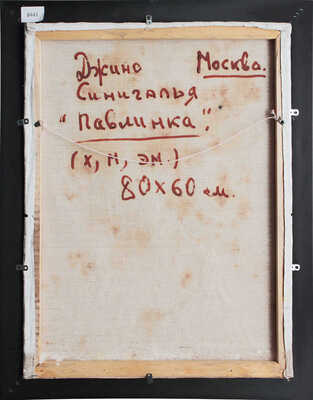 8841
Джино Москва.
Синигалья
"Павлинка".
(х, м, эм.)
80x60 см.